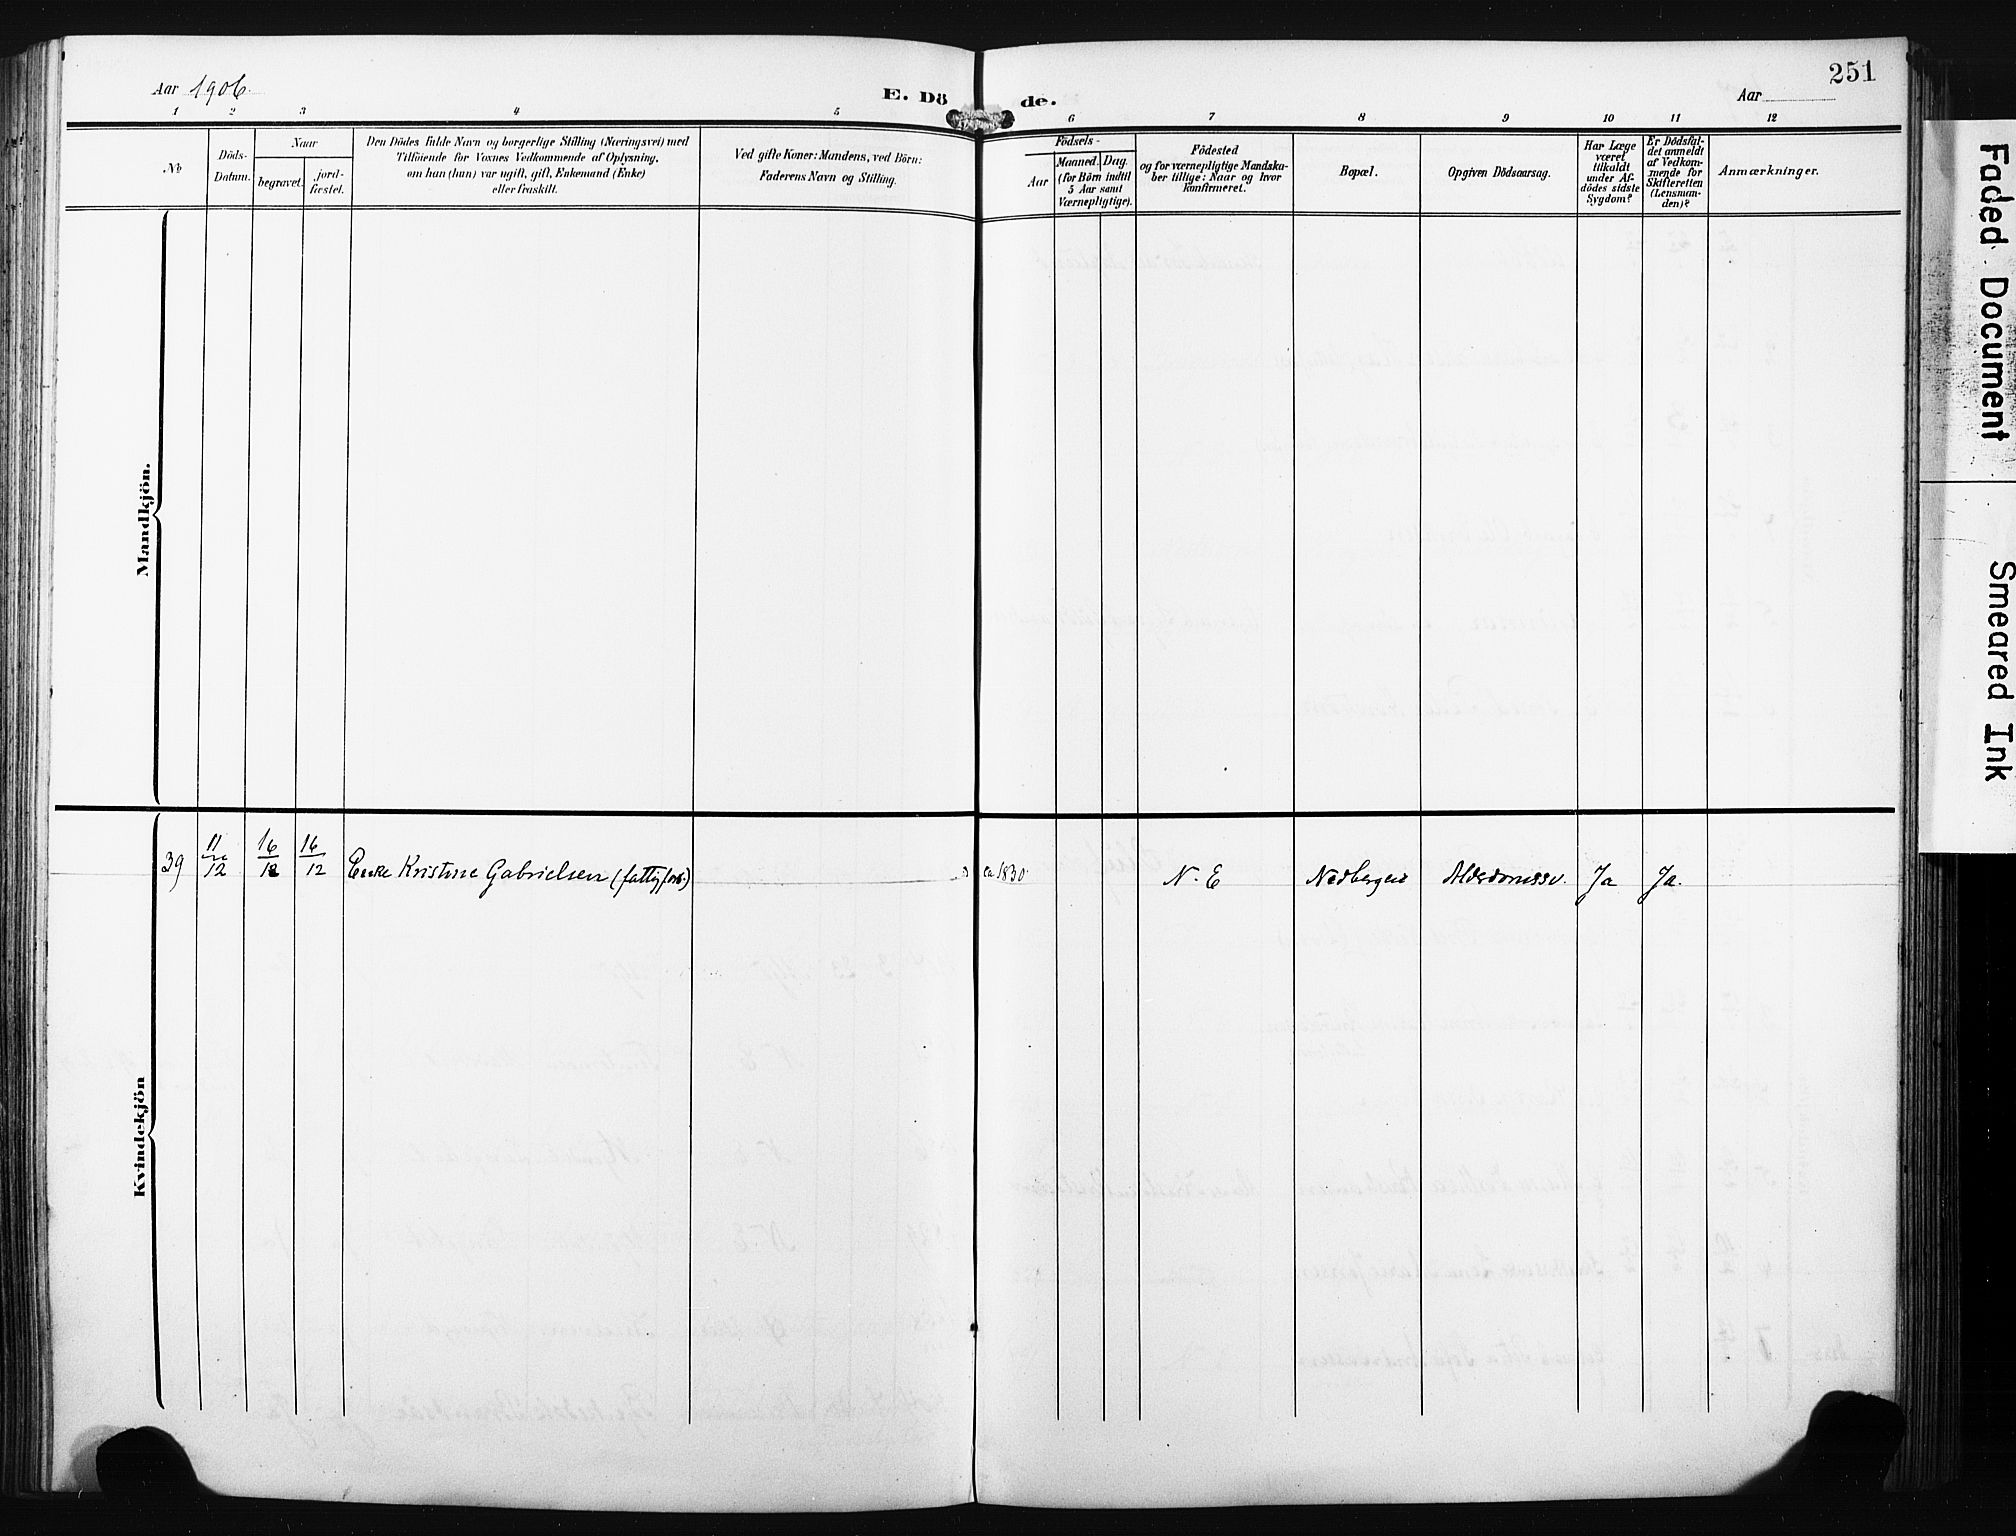 Aar 1906.
E. Dö de.
251
Aar
1 2 3 4 5 6 7 8 9 10 11 12
No
Döds-
Datum.
Naar
begravet.
jord-
fæstet.
Den Dödes fulde Navn og borgerlige Stilling (Næringsvei) med
Tilföiende for Voxnes Vedkommende af Oplysning,
om han (hun) var ugift, gift, Enkemand (Enke)
eller fraskilt.
Ved gifte Koner: Mandens, ved Börn:
Faderens Navn og Stilling.
Födsels-
Aar
Maaned. Dag.
(for Börn indtil
5 Aar samt
Værnepligtige).
Födested
og for værnepligtige Mandska-
ber tillige: Naar og hvor
konfirmeret.
Bopæl.
Opgiven Dödsaarsag.
Har Læge
været
tilkaldt
under Af-
dödes sidste
Sygdom?
Er Dödsfal-
det anmeldt
af Vedkom-
mende for
Skifteretten
(Lensman-
den)?
Anmærkninger.
Mandkjön.
Kvindekjön
39 11/12 16/12 16/12 Enke Kristine Gabrielsen (fattigfors.) ca 1830. N. E Nedbergene Alderdomssv. Ja Ja.
Faded Document
Smeared Ink